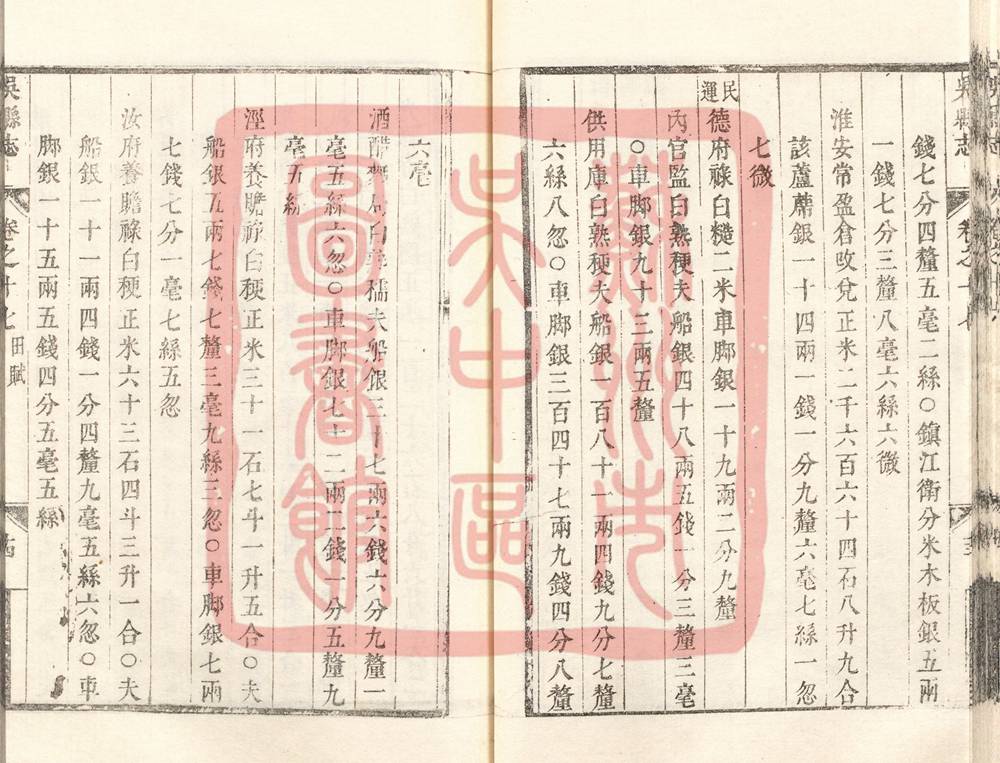 吳縣志
卷之十七
錢七分四釐五毫二絲○鎮江衛分米木板銀五兩
一錢七分三釐八毫六絲六微
淮安常盈倉攺兌正米二千六百六十四石八升九合
該蘆蓆銀一十四兩一錢一分九釐六毫七絲一忽
七微
民運
德府祿白糙二米車脚銀一十九兩二分九釐
內官監白熟稉夫船銀四十八兩五錢一分三釐三毫
○車脚銀九十三兩五釐
供用庫白熟稉夫船銀一百八十一兩四錢九分七釐
六絲八忽○車脚銀三百四十七兩九錢四分八釐
六毫
酒醋麪局白熟糯夫船銀三十七兩六錢六分九釐一
毫五絲六忽○車脚銀七十二兩二錢一分五釐九
毫五絲
涇府養贍祿白稉正米三十一石七斗一升五合○夫
船銀五兩七錢七釐三毫九絲三忽○車脚銀七兩
七錢七分一毫七絲五忽
汝府養贍祿白稉正米六十三石四斗三升一合○夫
船銀一十一兩四錢一分四釐九毫五絲六忽○車
脚銀一十五兩五錢四分五毫五絲
吳縣志
卷之十七
田賦
蘇州市
吳中區
圖書館